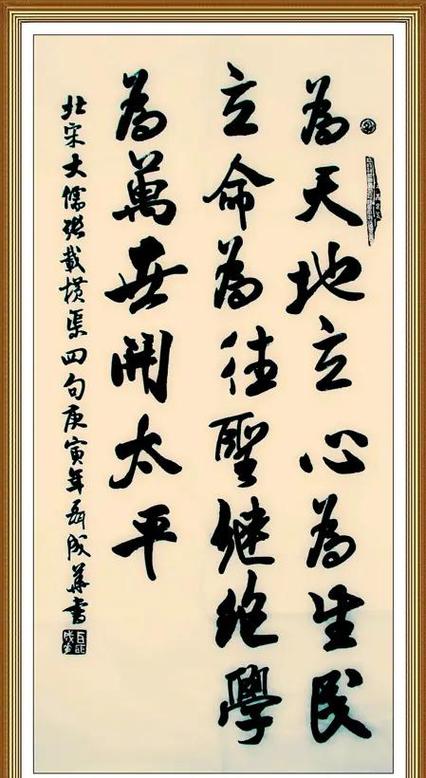 為天地立心為生民
立命為往聖繼絕學
為萬世開太平
北宋大儒張載橫渠四句庚寅年聶成華書